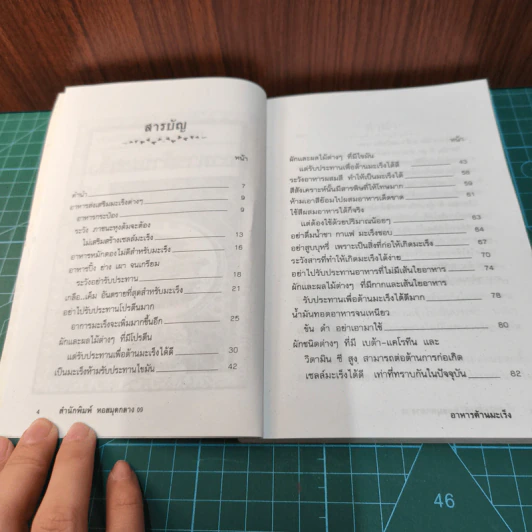 สารบัญ
หน้า
คำนำ 7
อาหารต่อเสริมมะเร็งต่างๆ 9
อาหารกระป๋อง 9
ระวัง ภาชนะหุงต้มจะต้อง
ไม่เสริมสร้างเซลล์มะเร็ง 13
อาหารหมักดองไม่ดีสำหรับมะเร็ง 16
อาหารปิ้ง ย่าง เผา จนเกรียม
ระวังอย่ารับประทาน 18
เกลือ...เค็ม อันตรายที่สุดสำหรับมะเร็ง 21
อย่าไปรับประทานโปรตีนมาก
อาการมะเร็งจะเพิ่มมากขึ้นอีก 25
ผักและผลไม้ต่างๆ ที่มีโปรตีน
แต่รับประทานเพื่อต้านมะเร็งได้ดี 30
เป็นมะเร็งห้ามรับประทานไขมัน 42
4 สำนักพิมพ์ หอสมุดกลาง 09
หน้า
ผักและผลไม้ต่างๆ ที่มีไขมัน
แต่รับประทานเพื่อต้านมะเร็งได้ดี 43
ระวังอาหารผสมสี ทำให้เป็นมะเร็งได้ 58
สีสังเคราะห์นั้นมีสารพิษที่ให้โทษมาก 59
ห้ามเอาสีย้อมไปผสมอาหารเด็ดขาด 61
ใช้สีผสมอาหารได้ก็จริง
แต่ต้องใช้ด้วยปริมาณน้อยๆ 63
อย่าดื่มน้ำชา กาแฟ มะเร็งชอบ 64
อย่าสูบบุหรี่ เพราะเป็นสิ่งที่ก่อให้เกิดมะเร็ง 67
ระวังสารที่ทำให้เกิดมะเร็งได้ง่าย 70
อย่าไปรับประทานอาหารที่ไม่มีเส้นใยอาหาร 74
ผักและผลไม้ต่างๆ ที่มีกากและเส้นใยอาหาร
รับประทานเพื่อต้านมะเร็งได้ดีมาก 78
น้ำมันทอดอาหารจนเหนียว
ข้น ดำ อย่าเอามาใช้ 80
ผักชนิดต่างๆ ที่มี เบต้า-แคโรทีน และ
วิตามิน ซี สูง สามารถต่อต้านการก่อเกิด
เซลล์มะเร็งได้ดี เท่าที่ทราบกันในปัจจุบัน 82
อาหารต้านมะเร็ง
46